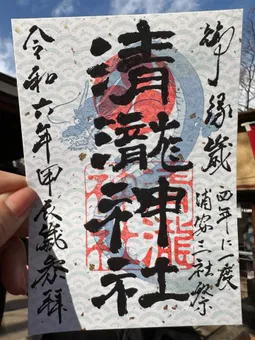 御縁歳
四年に一度
浦安三社祭
清瀧神社
清瀧
神社
令和六年甲辰歳参拝